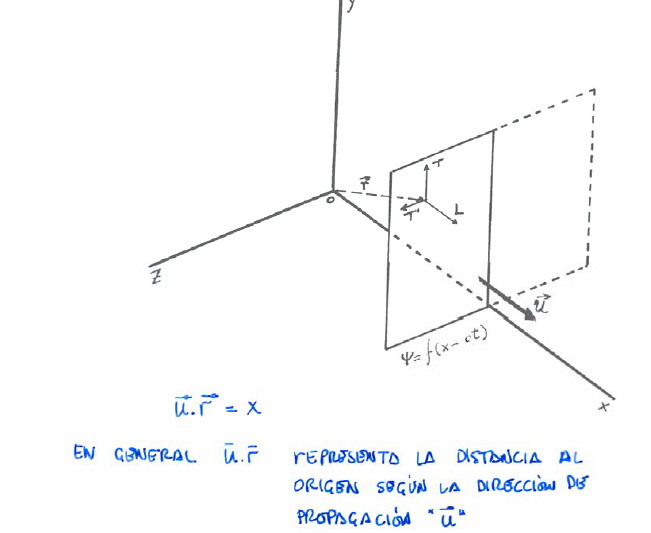 y
r⃗
T
o
T'
L
z
u⃗
ψ = f(x - ct)
x
u⃗.r⃗ = x
EN GENERAL ū.r̄ REPRESENTA LA DISTANCIA AL
ORIGEN SEGÚN LA DIRECCIÓN DE
PROPAGACIÓN "u⃗"